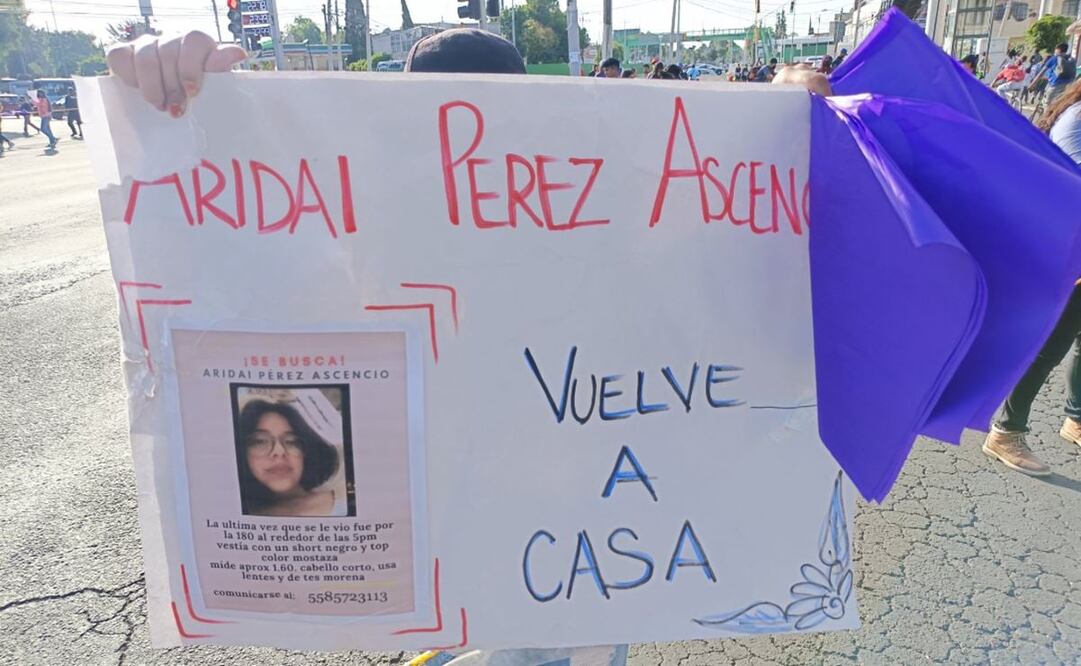 ARIDAI PEREZ ASCENC
¡SE BUSCA!
ARIDAI PÉREZ ASCENCIO
La ultima vez que se le vio fue por
la 180 al rededor de las 5pm
vestía con un short negro y top
color mostaza
mide aprox 1.60, cabello corto, usa
lentes y de tes morena
comunicarse al: 5585723113
VUELVE
A
CASA